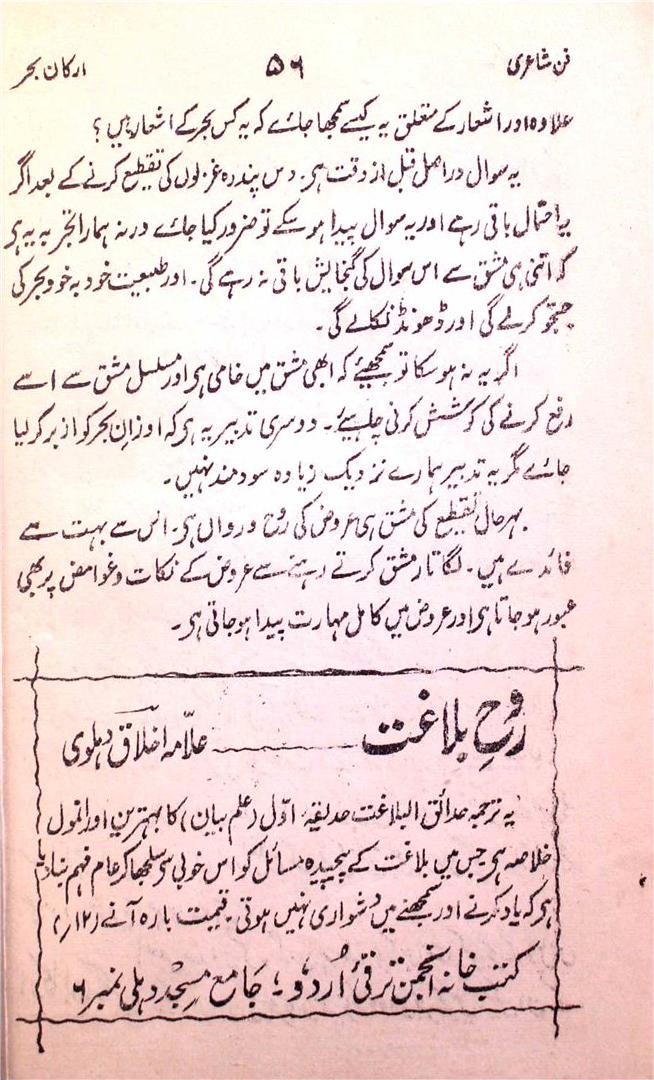 فن شاعری ۵۶ ارکان بحر
علاوہ اور اشعار کے متعلق یہ کیسے سمجھا جائے کہ یہ کس بحر کے اشعار ہیں؟
یہ سوال در اصل قبل از وقت ہی۔ دس پندرہ غزلوں کی تقطیع کرنے کے بعد اگر
یہ احتمال باقی رہے اور یہ سوال پیدا ہو سکے تو ضرور کیا جائے ورنہ ہمارا تجربہ یہ ہی
کہ اتنی ہی مشق سے اس سوال کی گنجایش باقی نہ رہے گی۔ اور طبیعت خود بہ خود بحر کی
جستجو کرلے گی اور ڈھونڈ نکالے گی۔
اگر یہ نہ ہو سکا تو سمجھیئے کہ ابھی مشق میں خامی ہی اور مسلسل مشق سے اسے
رفع کرنے کی کوشش کرنی چاہیئے۔ دوسری تدبیر یہ ہی کہ اوزان بحر کو ازبر کر لیا
جائے مگر یہ تدبیر ہمارے نزدیک زیادہ سودمند نہیں۔
بہرحال تقطیع کی مشق ہی عروض کی روح و رواں ہی۔ اس سے بہت سے
فائدے ہیں۔ لگاتار مشق کرتے رہنے سے عروض کے نکات و غوامض پر بھی
عبور ہو جاتا ہی اور عروض میں کامل مہارت پیدا ہو جاتی ہی۔
روحِ بلاغت ـــــ علّامہ اخلاق دہلوی
یہ ترجمہ حدائق البلاغت حدیقہ اوّل (علم بیان) کا بہترین اور انمول
خلاصہ ہی جس میں بلاغت کے پیچیدہ مسائل کو اس خوبی سی سلجھا کر عام فہم بنا دیا
ہی کہ یاد کرنے اور سمجھنے میں دشواری نہیں ہوتی۔ قیمت بارہ آنے (۱۲؍)
کتب خانہ انجمن ترقئ اُردو؛ جامع مسجد دہلی نمبر ۶